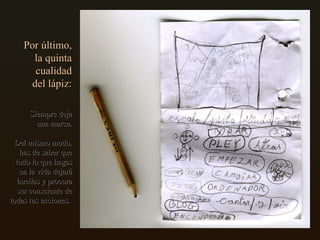 Por último,
la quinta
cualidad
del lápiz:
Siempre deja
una marca.
Del mismo modo,
has de saber que
todo lo que hagas
en la vida dejará
huellas y procura
ser consciente de
todas tus acciones.
PLEY
EMPEZAR
CAMBIAR
ORDENADOR
BLOG
ENCENDER